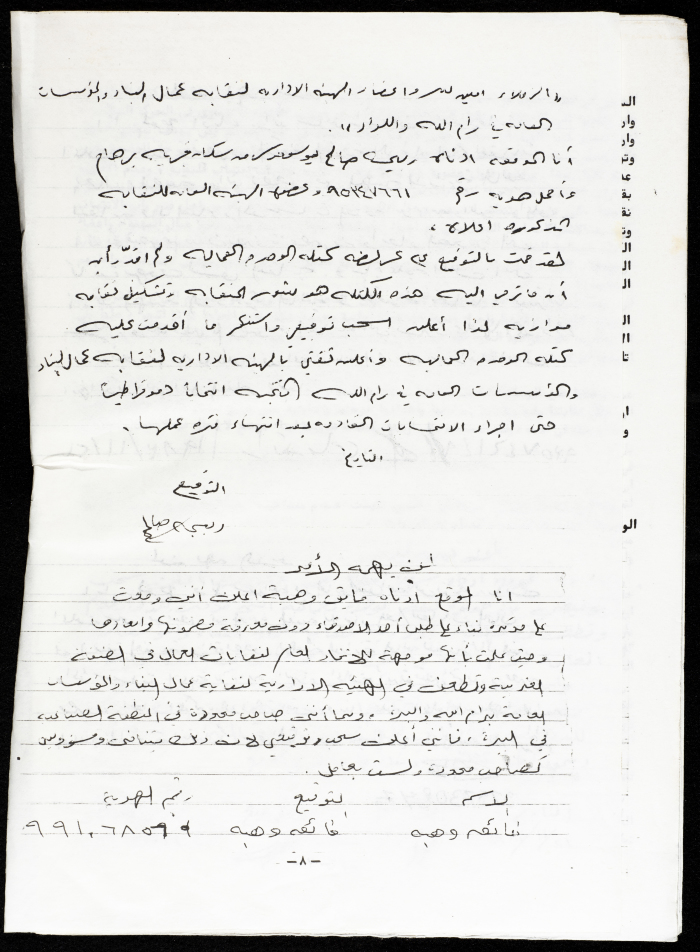 "الزملاء امين سر واعضاء الهيئة الادارية لنقابة عمال البناء والمؤسسات
العامة في رام الله واللواء".
أنا الموقع ادناه ربحي صالح من سكان قرية برهام
وأحمل هوية رقم ٩٥٣٤٧٦٦١ وعضو الهيئة العامة للنقابة
المذكورة اعلاه،
لقد قمت بالتوقيع على عريضة كتلة الوحدة العمالية ولم اقدر أن
أن ما ترمي اليه هذه الكتلة هو النقابة وتشكيل نقابة
موازية لذا أعلن سحب توقيعي واستنكر ما أقدمت عليه
كتلة الوحدة العمالية وأعلن ثقتي بالهيئة الادارية لنقابة عمال البناء
والمؤسسات العامة في رام الله المنتخبة انتخاباً ديموقراطياً
حتى اجراء الانتخابات القادمة بعد انتهاء فترة عملها.
التاريخ
التوقيع
ربحي صالح
لمن يهمه الأمر
انا الموقع ادناه فايق وهبة اعلن أنني وقعت
على مذكرة بناء على طلب أحد الاصدقاء دون معرفة مضمونها وابعادها
وحين علمت بأنها موجهة للاتحاد العام لنقابات العمال في الضفة
الغربية وتطعن في الهيئة الادارية لنقابة عمال البناء والمؤسسات
العامة برام الله والبيرة، وبما أنني صاحب محددة في المنطقة الصناعية
في البيرة، فانني أعلن سحب توقيعي لان ذلك يتنافى
كصاحب محددة ولست بعامل.
الاسم التوقيع رقم الهوية
فائق وهبه فائق وهبه ٩٩١٠٦٨٥٩٩
-٨-